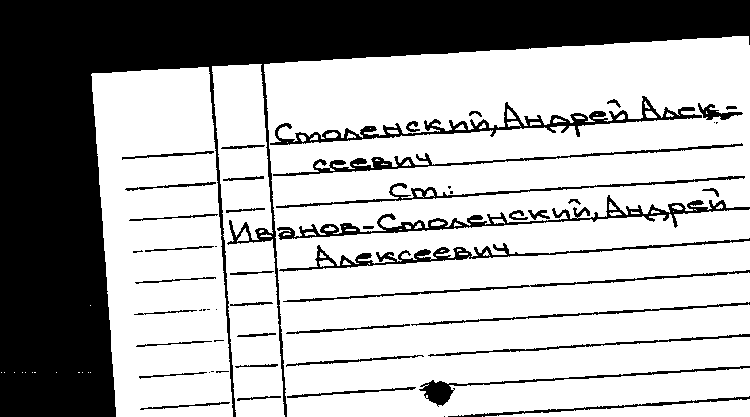 Смоленский, Андрей Алек-
сеевич
См.:
Иванов-Смоленский, Андрей
Алексеевич.